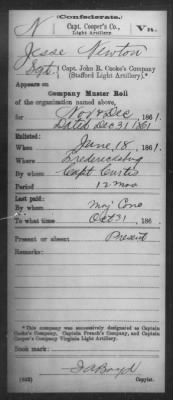 (Confederate.)
N Capt. Cooper's Co., Va.
Light Artillery.
Jesse Newton
Sgt., Capt. John R. Cooke's Company
(Stafford Light Artillery).*
Appears on
Company Muster Roll
of the organization named above,
for Nov & Dec, 1861.
Dated Dec 31 1861
Enlisted:
When June 18, 1861.
Where Fredericksburg
By whom Capt Curtis
Period 12 mos
Last paid:
By whom Maj Cone
To what time Oct 31, 186 .
Present or absent Present
Remarks:
*This company was successively designated as Captain
Cooke's Company, Captain French's Company, and Captain
Cooper's Company Virginia Light Artillery.
Book mark:
(642) Copyist.